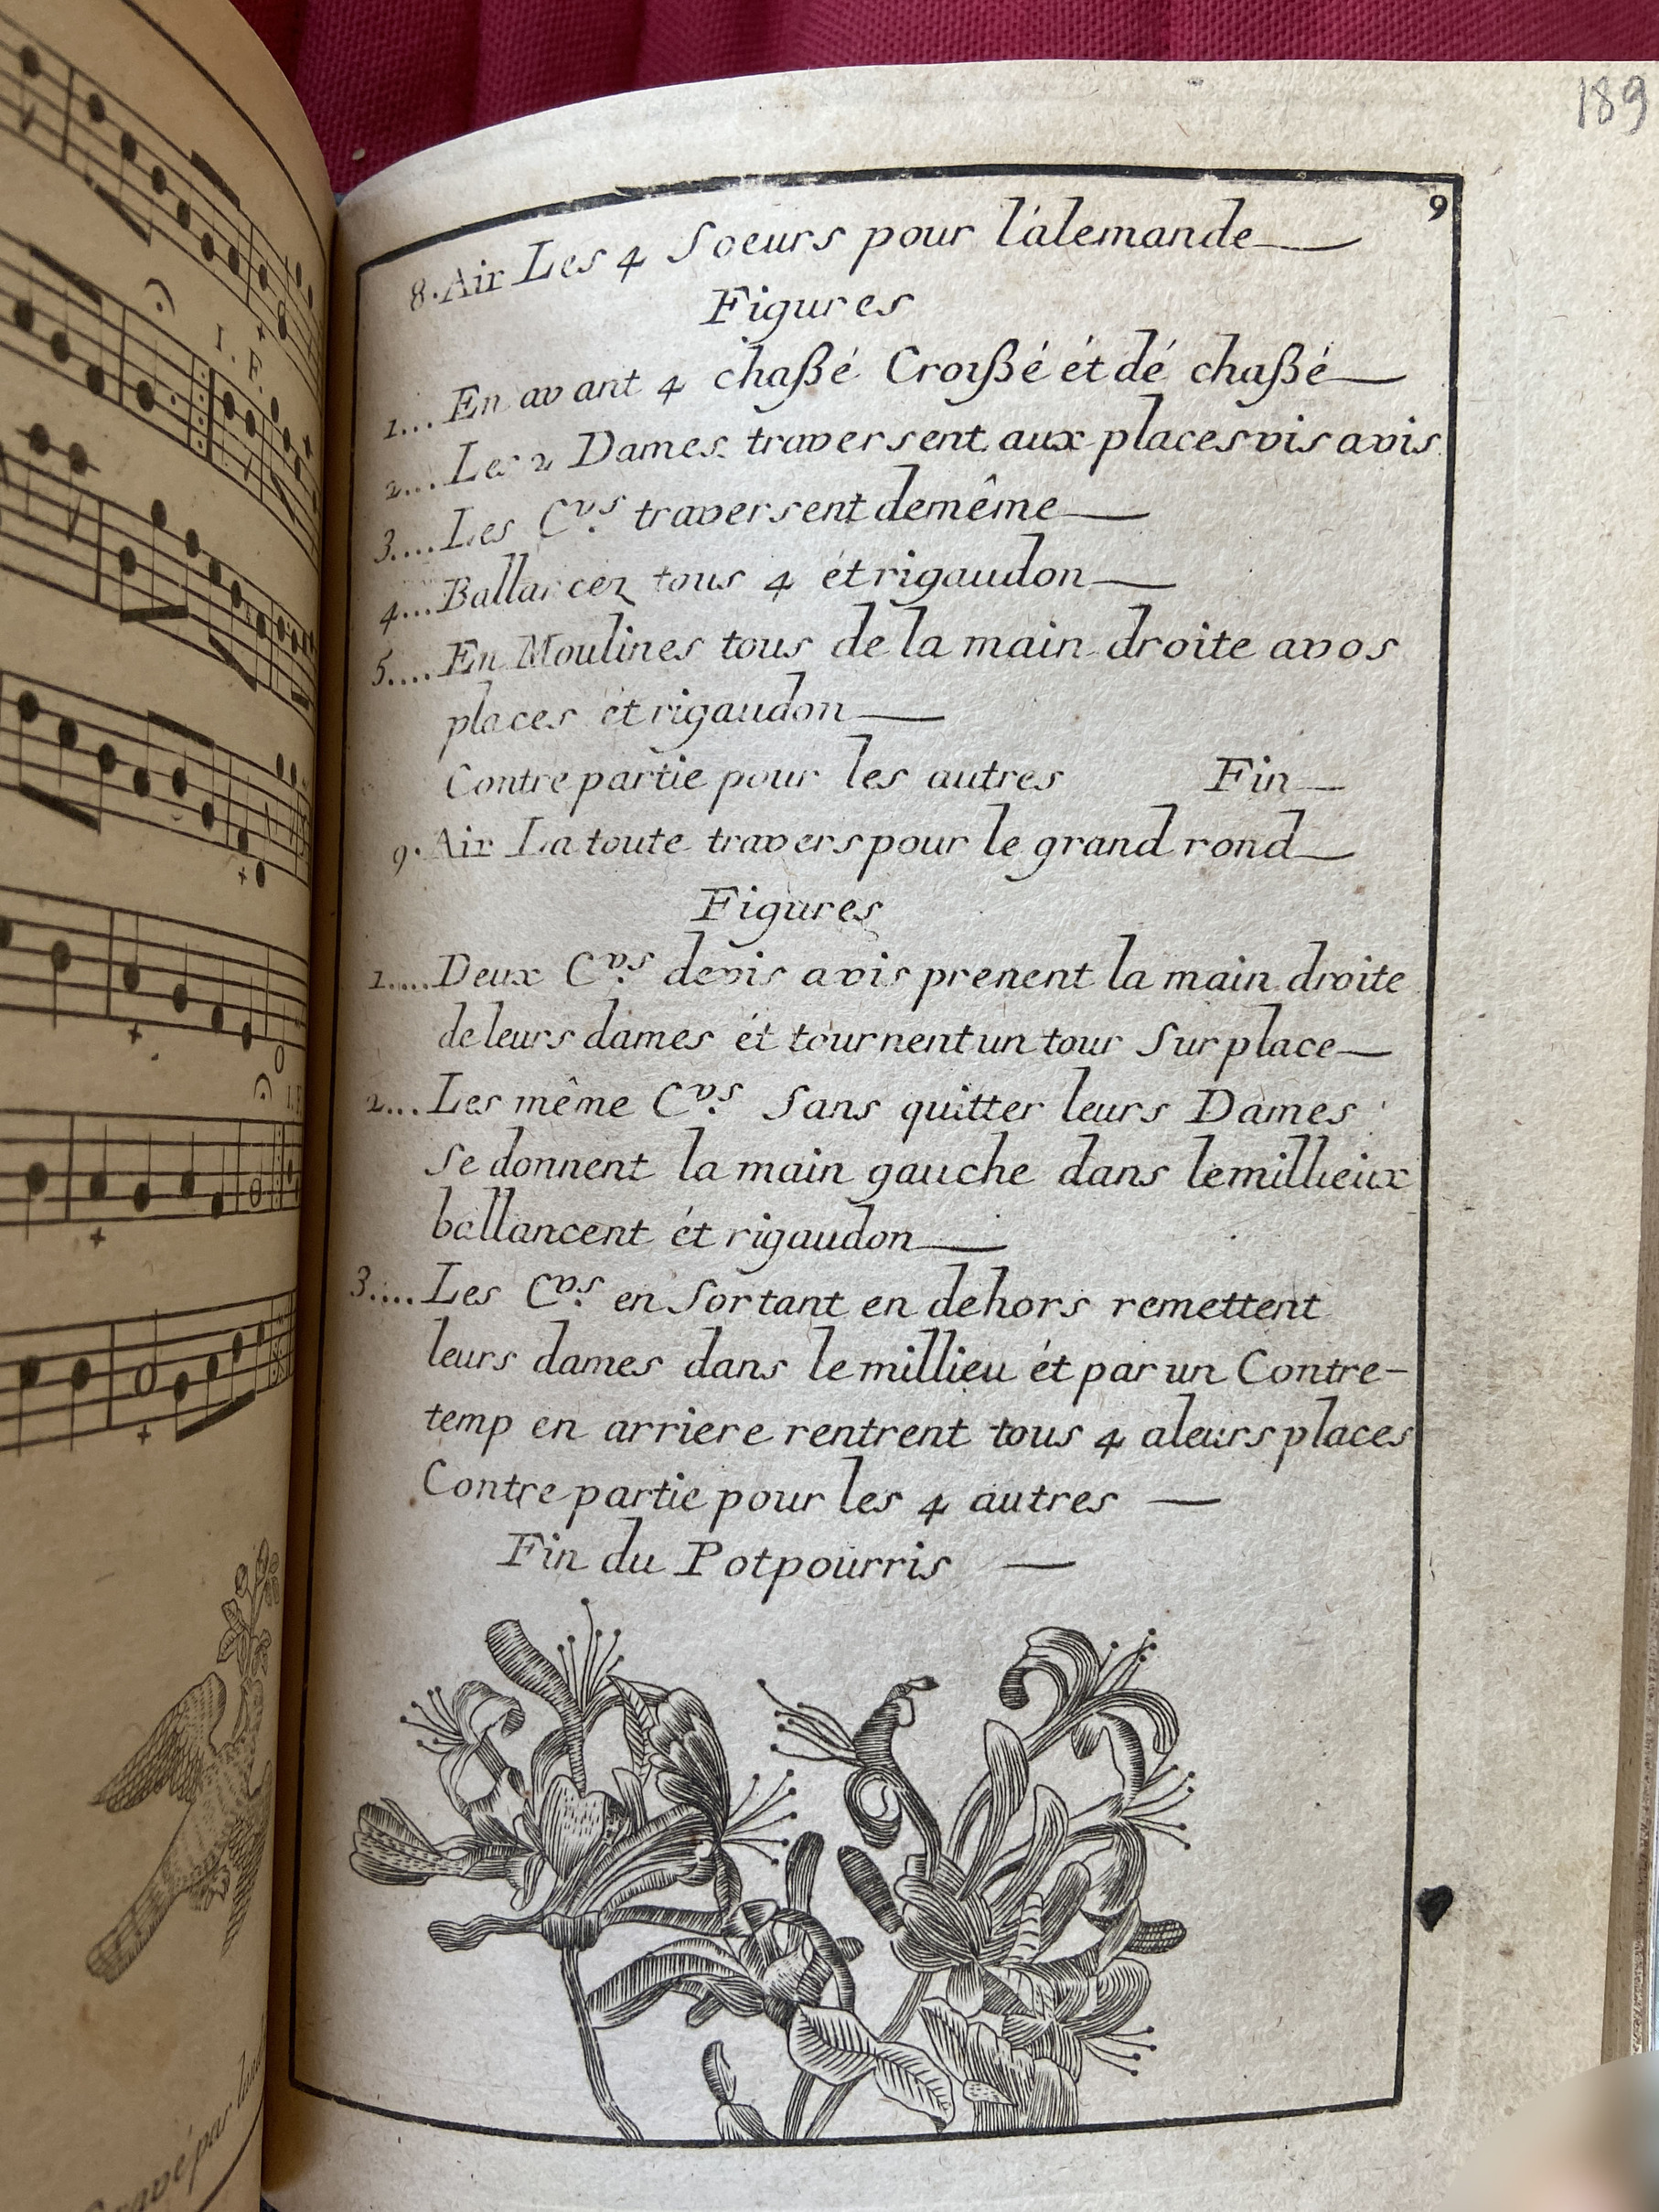 189
9
8. Air Les 4 Soeurs pour l'álemande
Figures
1... En avant 4 chaßé Croißé ét dé chaßé
2.... Les 2 Dames traversent aux places vis avis
3.... Les Cvs. traversent demême
4... Ballancez tous 4 ét rigaudon
5.... En Moulines tous de la main droite avos
places ét rigaudon
Contre partie pour les autres Fin
9. Air La toute travers pour le grand rond
Figures
1.... Deux Cvs. devis avis prenent la main droite
de leurs dames ét tournent un tour Sur place
2... Les même Cvs. Sans quitter leurs Dames
Se donnent la main gauche dans le millieux
ballancent ét rigaudon
3.... Les Cvs. en Sortant en dehors remettent
leurs dames dans le millieu ét par un Contre-
temp en arriere rentrent tous 4 aleurs places
Contre partie pour les 4 autres
Fin du Potpourris
I. F.
Gravé par